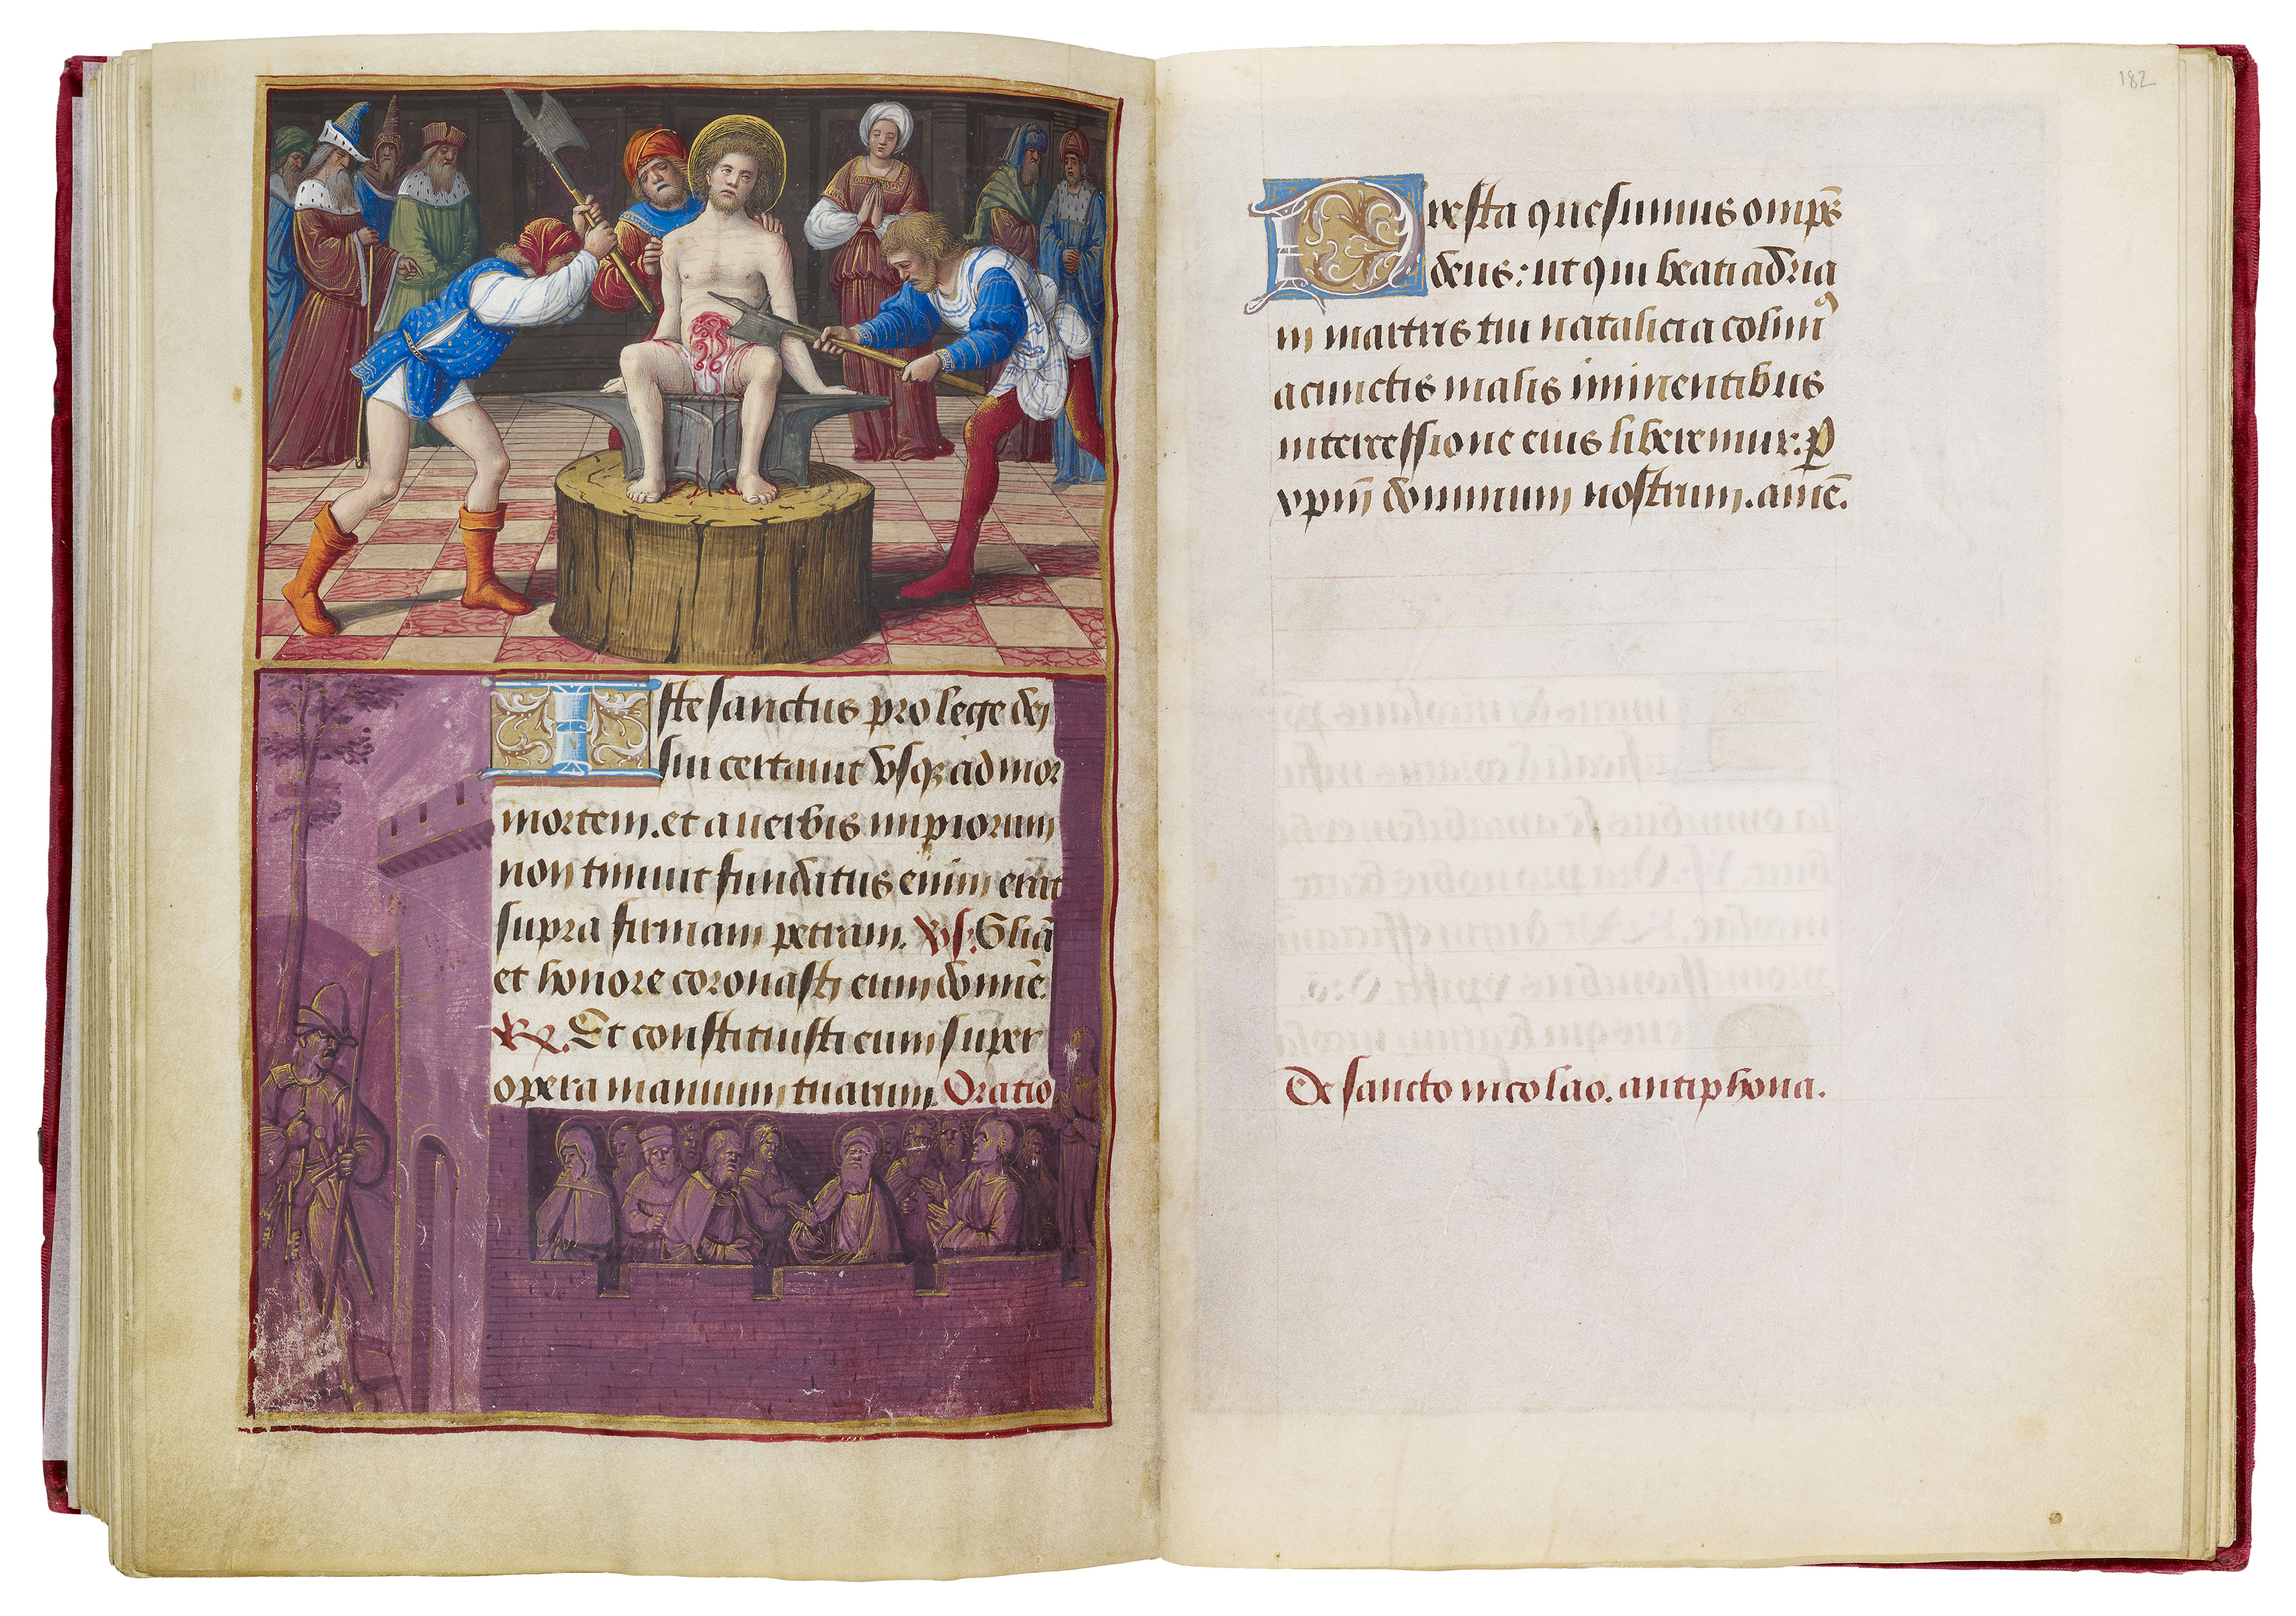 Iste sanctus pro lege dei
sui certauit vsq; ad mor
mortem. et a uerbis impiorum
non timuit funditus enim erat
supra firmam petram. Vs. Gliã
et honore coronasti eum domiẽ.
R. Et constituisti eum super
opera manuum tuarum. Oratio
182
Presta quesumus omps̃
deus: ut qui beati adria
ni martiris tui natalicia colim9
a cunctis malis iminentibus
intercessione eius liberemur. P
xpm̃ dominum nostrum. amẽ.
De sancto nicolao. antiphona.